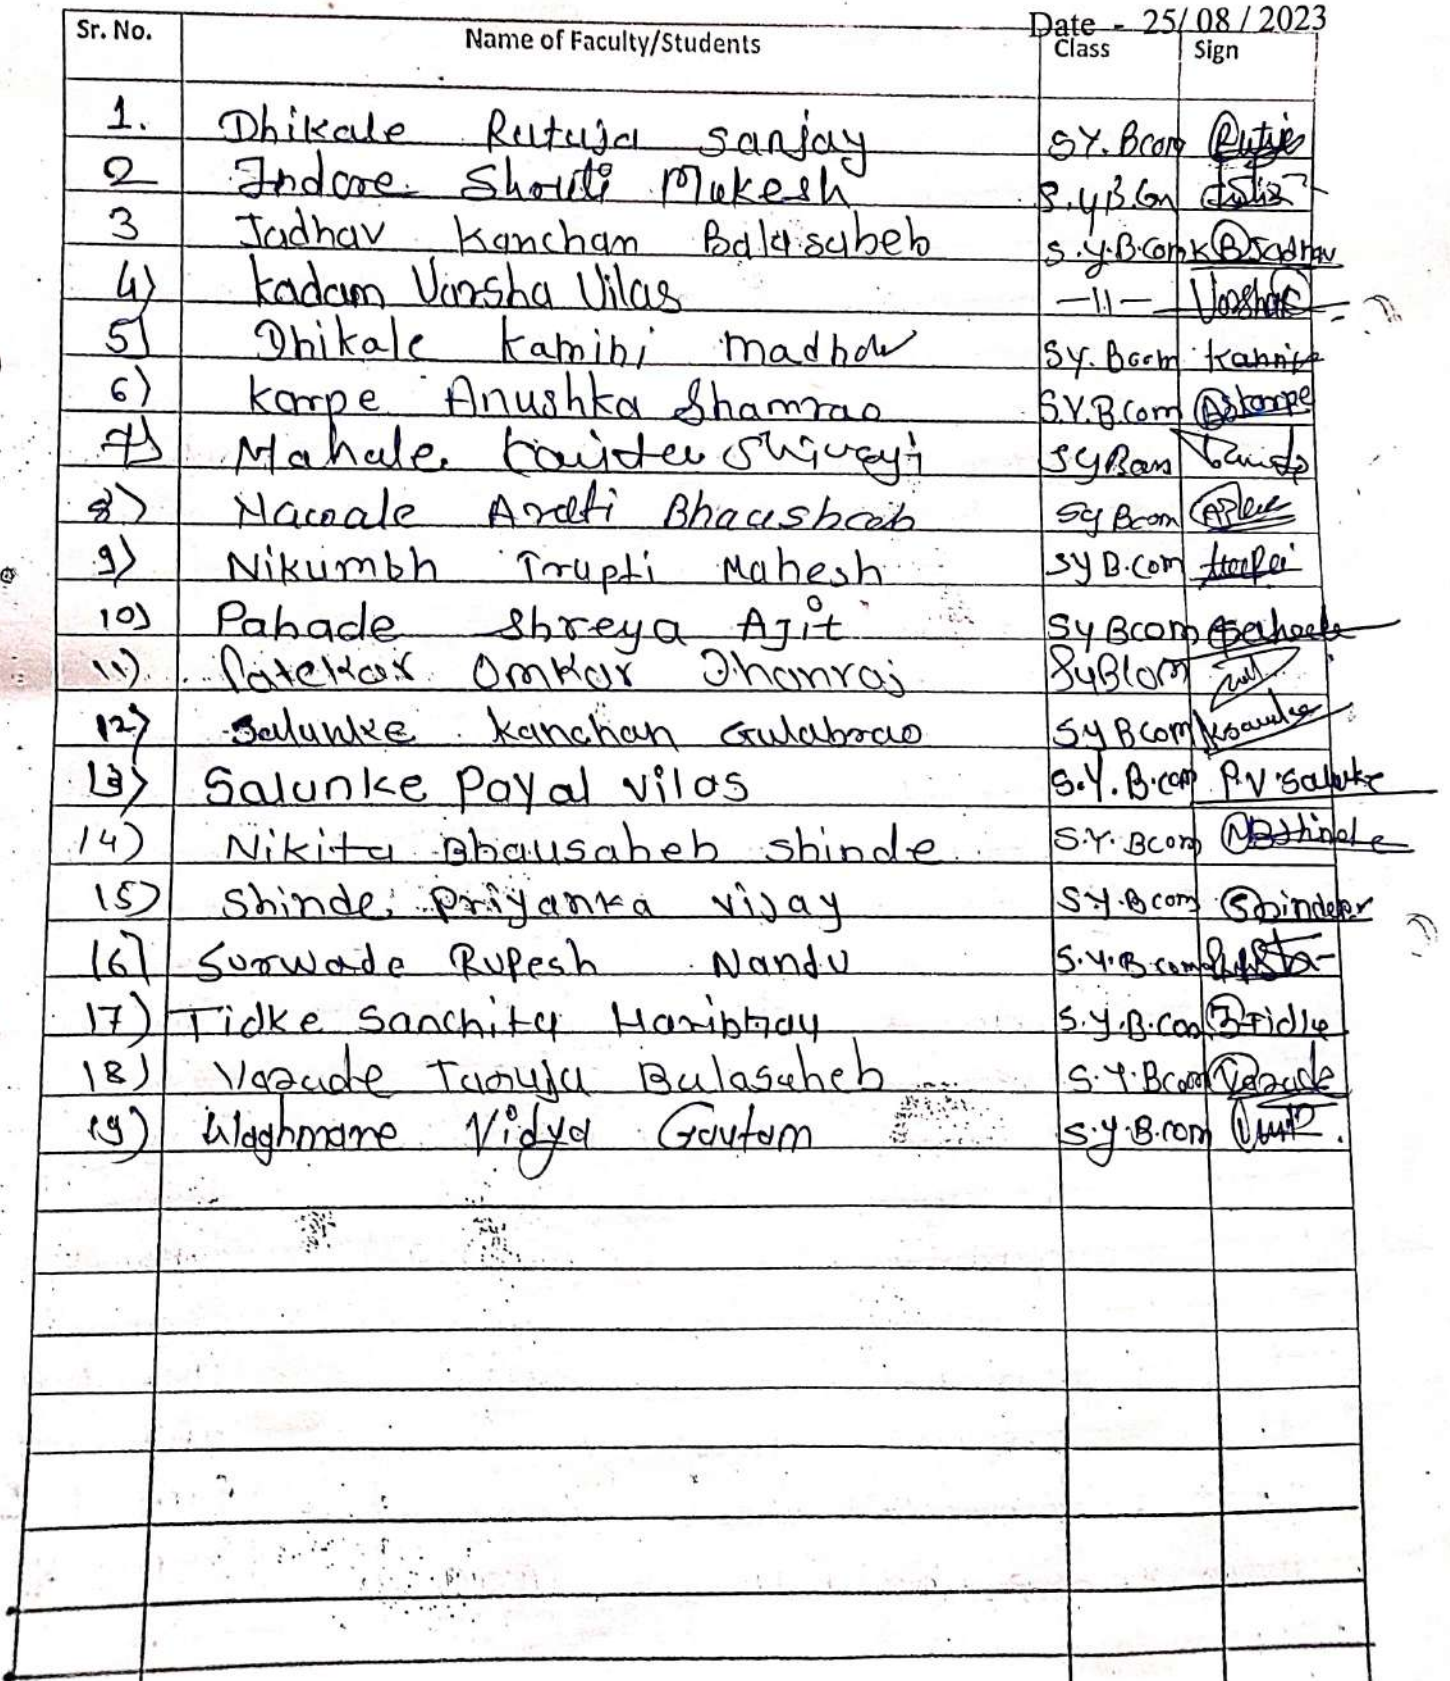 Date - 25/08/2023
Sr. No. Name of Faculty/Students Class Sign
1. Dhikale Rutuja Sanjay SY. Bcom
2 Indore Shruti Mukesh S.Y B.Com
3 Jadhav Kanchan Balasaheb S.Y.B.Com K B Jadhav
4) Kadam Varsha Vilas —11— Varsha
5) Dhikale Kamini Madhav SY. Bcom
6) Karpe Anushka Shamrao S.Y.B.Com Askarpe
7) Mahale Shivaji SYBcom
8) Nawale Arati Bhausheb Sy Bcom
9) Nikumbh Trupti Mahesh SY B.Com
10) Pahade Shreya Ajit Sy Bcom
11) Patekar Omkar Dhanraj SyBCom
12) Salunke Kanchan Gulabrao SY BCom
13) Salunke Payal Vilas S.Y. B.com P.V. Salunke
14) Nikita Bhausaheb Shinde S.Y. Bcom NBShinde
15) Shinde Priyanka Vijay SY.Bcom Shindepr
16) Surwade Rupesh Nandu S.Y.B.com
17) Tidke Sanchita Haribhau S.Y.B.Com Tidke
18) Varade Tanuja Balasaheb S.Y.Bcom Varade
19) Waghmare Vidya Gautam S.Y.B.com